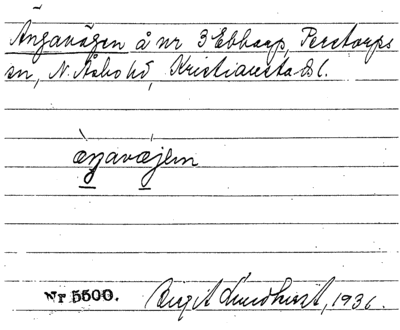 Ängavägen å nr 3 Ebbarp, Perstorps
sn, N. Åsbo hd, Kristianstads l.
æŋavæjem
Nr 5500. Birgit Lundhurst, 1936.